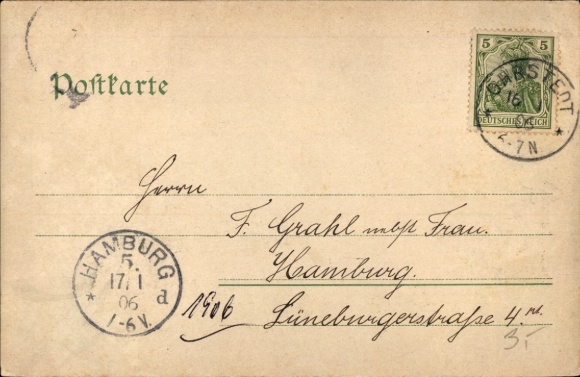 Postkarte
5 5
DEUTSCHES REICH
OHRSTEDT
16
2-7N
Herrn
F. Grahl nebst Frau.
Hamburg.
Lüneburgerstraße 4.
HAMBURG
5.
17/1
06 d
1-6V.
1906
3.-